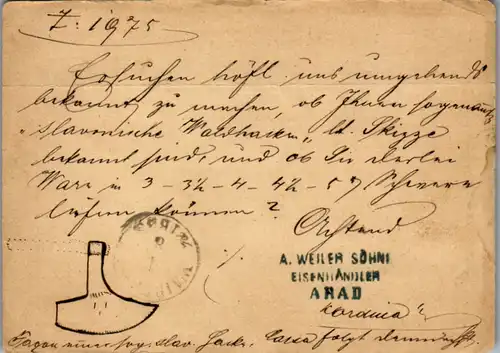 Z: 1975
Ersuchen höfl. uns umgehends
bekannt zu machen, ob Ihnen sogenannte
"slavonische Waldhacken" lt. Skizze
bekannt sind, und ob Sie derlei
Ware in 3 - 3½ - 4 - 4½ - 5 Schwere
liefern können?
Achtend
A. WEILER SÖHNE
EISENHÄNDLER
ARAD
Façon einer sog. slav. Hacke. folgt demnächst.